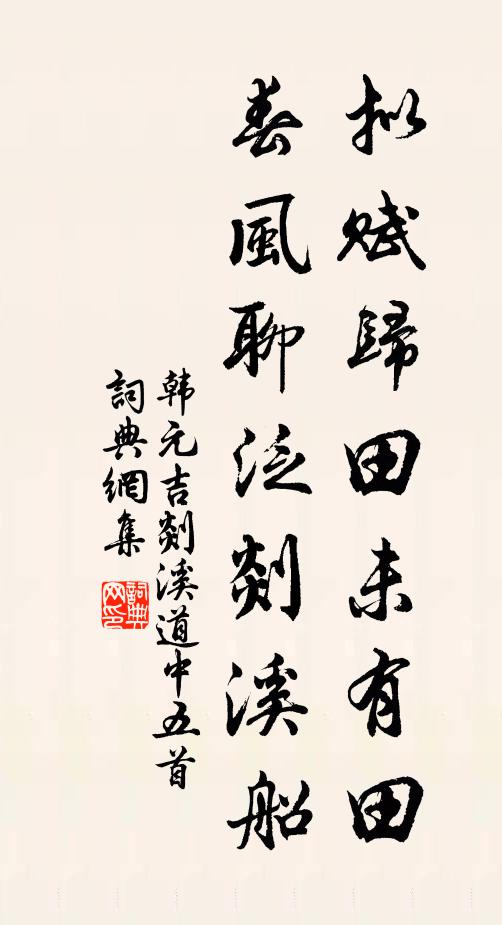 拟赋歸田未有田
春風聊泛剡溪船
韩元吉剡溪道中五首
詞典網集
詞典网印